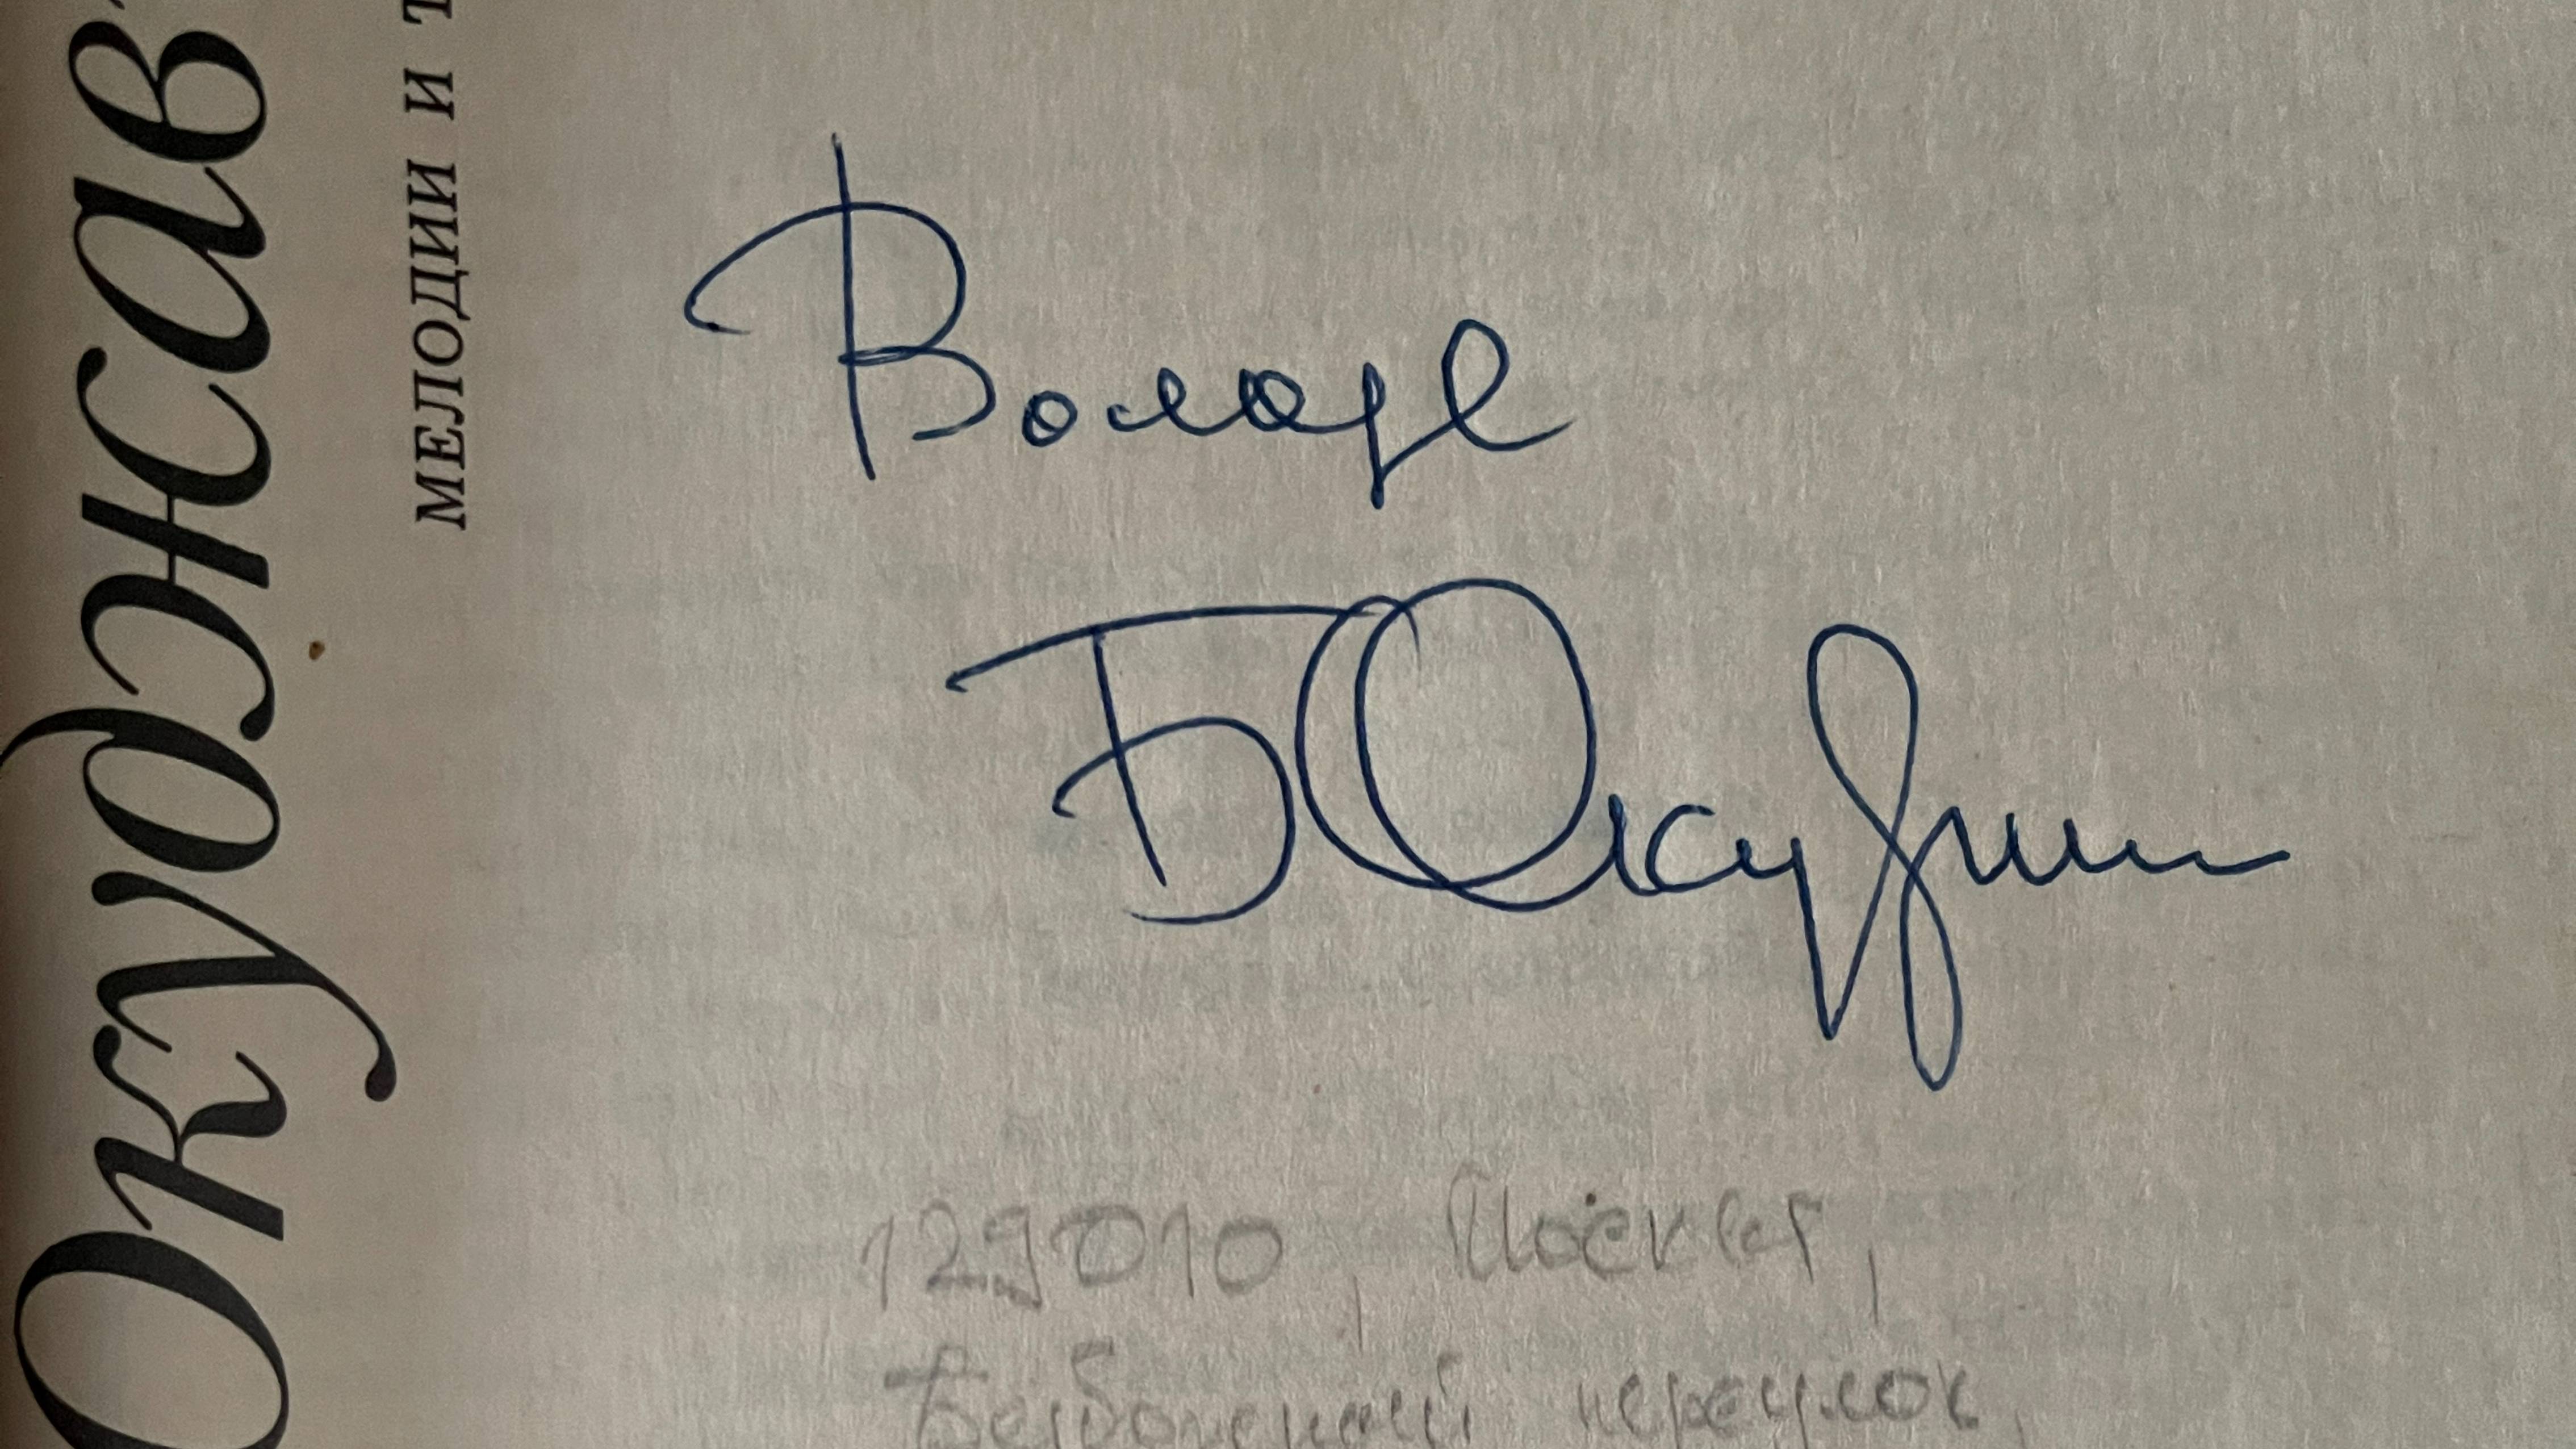 Окуджав
МЕЛОДИИ И Т
Володе
Б Окуджав
129010, Москва,
переулок,